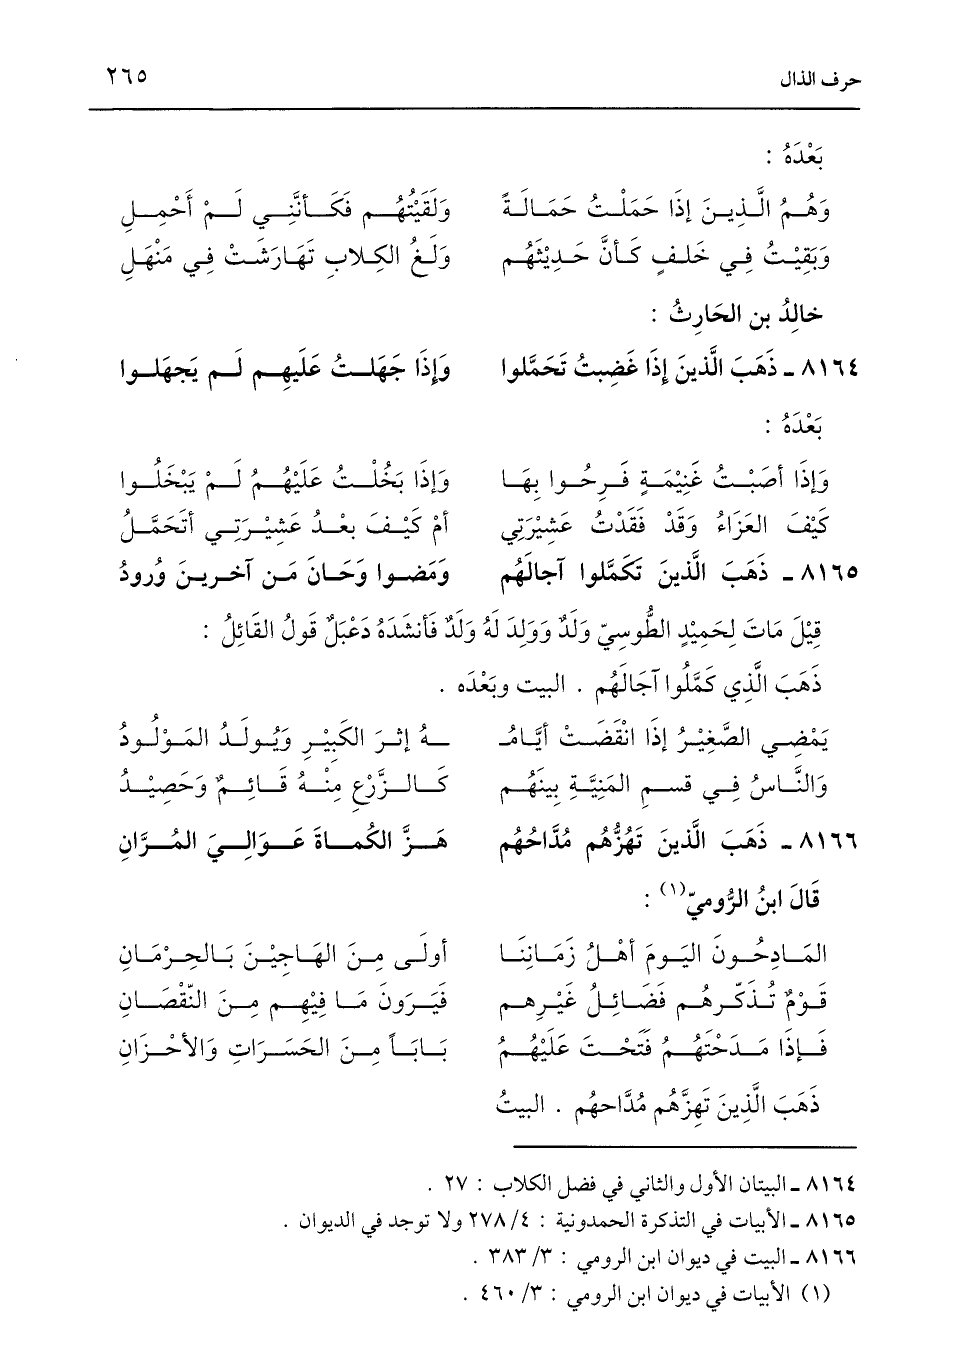 حرف الذال ٢٦٥
بَعْدَهُ :
وَهُمُ الَّذِينَ إذَا حَمَلْتُ حَمَالَةً وَلَقَيْتُهُم فَكَأَنَّنِي لَمْ أَحْمِلِ
وَبَقِيْتُ فِي خَلفٍ كَأنَّ حَدِيْثَهُم وَلَغُ الكِلابِ تَهَارَشَتْ فِي مَنْهَلِ
خالِدُ بن الحَارِثُ :
٨١٦٤ ـ ذَهَبَ الَّذينَ إِذَا غَضِبتُ تَحَمَّلوا وَإِذَا جَهَلتُ عَلَيهِم لَم يَجهَلوا
بَعْدَهُ :
وَإذَا أصَبْتُ غَنِيْمَةٍ فَرِحُوا بِهَا وَإذَا بَخُلْتُ عَلَيْهُمُ لَمْ يَبْخَلُوا
كَيْفَ العَزَاءُ وَقَدْ فَقَدْتُ عَشِيْرَتِي أمْ كَيْفَ بعْدُ عَشِيْرَتِي أتَحَمَّلُ
٨١٦٥ ـ ذَهَبَ الَّذينَ تَكَمَّلوا آجالَهُم وَمَضوا وَحَانَ مَن آخرينَ وُرودُ
قِيْلَ مَاتَ لِحَمِيْدٍ الطُّوسِيّ وَلَدٌ وَوَلِدَ لَهُ وَلَدٌ فَأنشَدَهُ دَعْبَلٌ قَولُ القَائِلُ :
ذَهَبَ الَّذِي كَمَّلُوا آجَالَهُم . البيت وبَعْدَه .
يَمْضِي الصَّغِيْرُ إذَا انْقَضَتْ أيَّامُـ ـهُ إثرَ الكَبِيْرِ وَيُولَدُ المَوْلُودُ
وَالنَّاسُ فِي قسمِ المَنِيَّةِ بينَهُم كَالزَّرْعِ مِنْهُ قَائِمٌ وَحَصِيْدُ
٨١٦٦ ـ ذَهَبَ الَّذينَ تَهُزُّهُم مُدَّاحُهُم هَزَّ الكُماةَ عَوالِيَ المُرَّانِ
قَالَ ابنُ الرُّوميّ(١) :
المَادِحُونَ اليَومَ أهْلُ زَمَانِنَا أولَى مِنَ الهَاجِيْنَ بَالحِرْمَانِ
قَوْمٌ تُذَكّرهُم فَضَائِلُ غَيْرِهم فَيَرَونَ مَا فِيْهِم مِنَ النَّقْصَانِ
فَإذَا مَدَحْتَهُمُ فَتَحْتَ عَلَيْهُمُ بَابَاً مِنَ الحَسَرَاتِ وَالأحْزَانِ
ذَهَبَ الَّذِينَ تَهِزَّهُم مُدَّاحهُم . البيتُ
٨١٦٤ ـ البيتان الأول والثاني في فضل الكلاب : ٢٧ .
٨١٦٥ ـ الأبيات في التذكرة الحمدونية : ٤/ ٢٧٨ ولا توجد في الديوان .
٨١٦٦ ـ البيت في ديوان ابن الرومي : ٣/ ٣٨٣ .
(١) الأبيات في ديوان ابن الرومي : ٣/ ٤٦٠ .